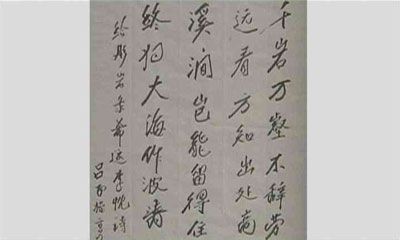 千岩万壑不辞劳
远看方知出处高
溪涧岂能留得住
终归大海作波涛
李忱诗